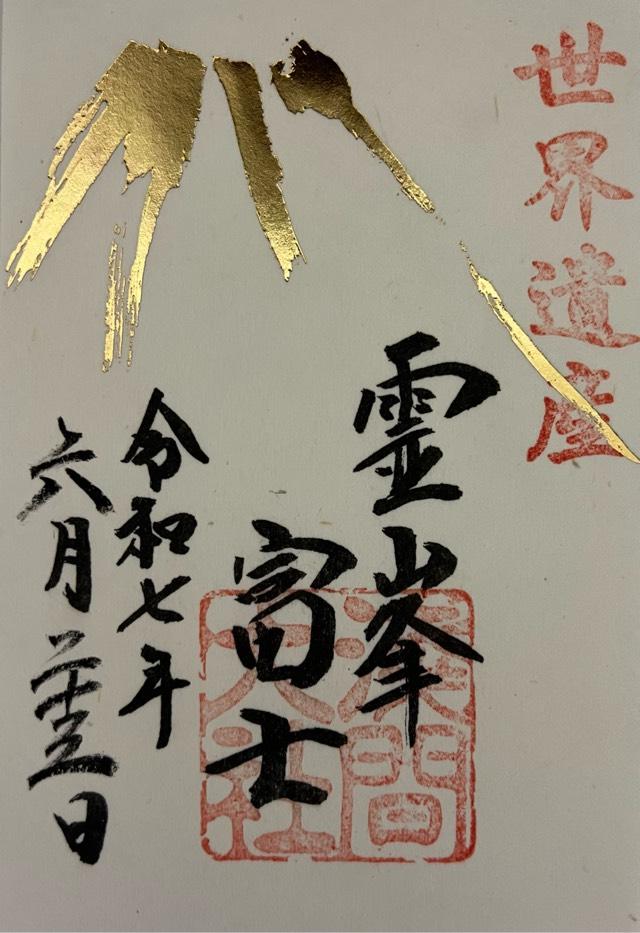 世界遺産
霊峯
富士
淺間
大社
令和七年
六月二十三日